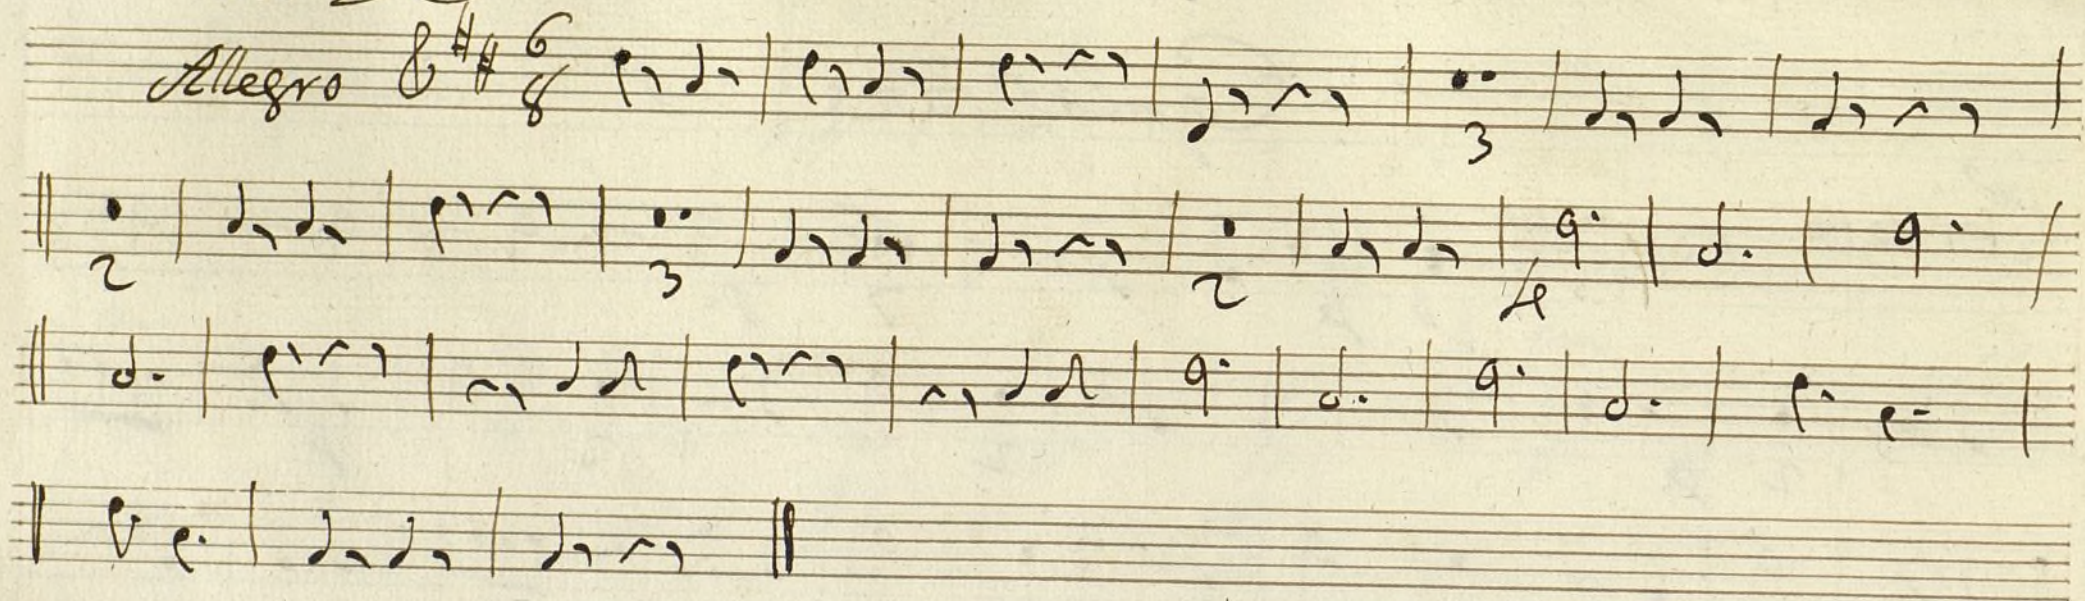 Allegro 6 8
3
2 3 2 4